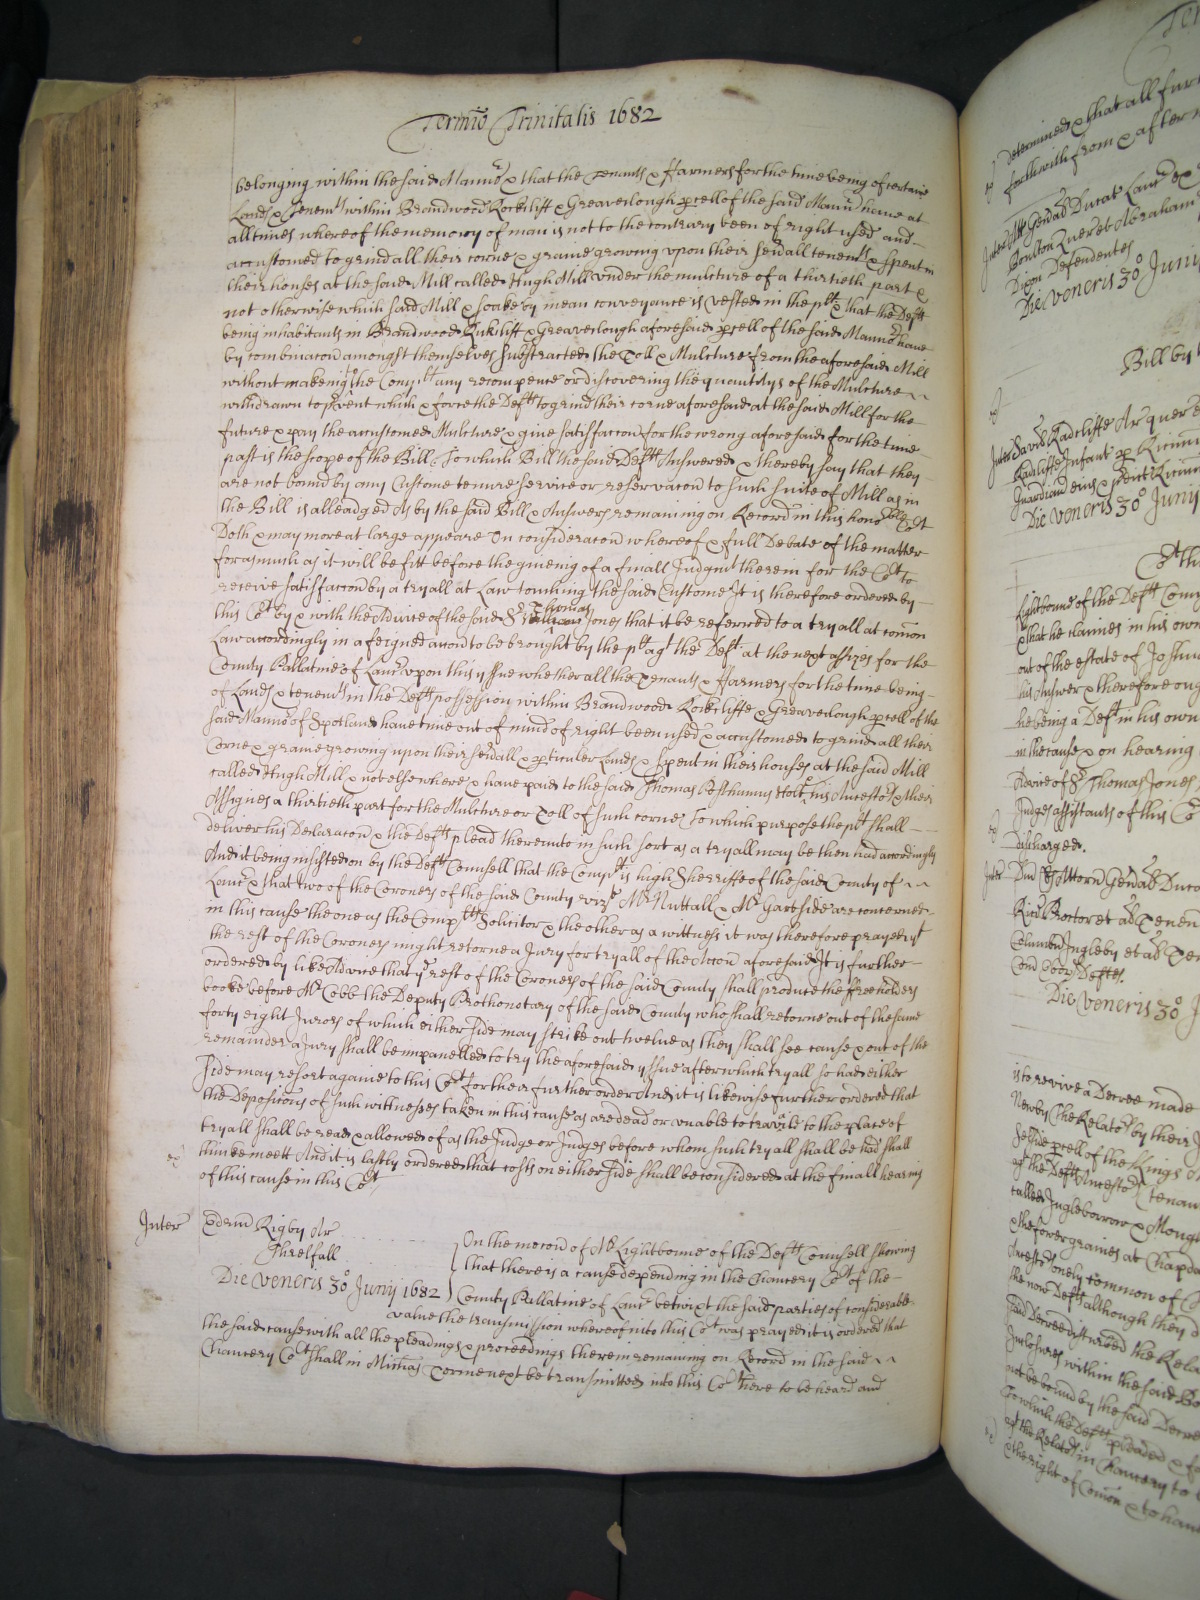 Termīo Trinitatis 1682
belonging within the said Mannor & that the Tenants & ffarmers for the time being of certaine
Lands & Tenemts within Brandwood Rockcliff & Greaveclough pcell of the said Mannor have at
all times whereof the memory of man is not to the contrary been of right used and
accustomed to grind all their corne & graine growing upon their sevall tenemts & spent in
their houses at the said Mill called Hugh Mill under the mulcture of a thirtieth part &
not otherwise which said Mill & soake by mean conveyance is vested in the plt & that the Defts
being inhabitants in Brandwood Rockcliff & Greaveclough aforesaid pcell of the said Mannor have
by combinacon amongst themselves substracted the Toll & Mulcture from the aforesaid Mill
without makeing to the Complt any recompence or discovering the quantitys of the Mulcture
withdrawn to pvent which & force the Defts to grind their corne aforesaid at the said Mill for the
future & pay the accustomed Mulcture & give satisfaccon for the wrong aforesaid for the time
past is the scope of the Bill. To which Bill the said Defts Answered & thereby say that they
are not bound by any Custome tenure service or reservacon to such suite of Mill as in
the Bill is alleadged As by the said Bill & Answers remaining on Record in this honoble Cot
Doth & may more at large appeare On consideracon whereof & full Debate of the matter
forasmuch as it will be fitt before the giveing of a finall Judgmt therein for the Cot to
receive satisfaccon by a tryall at Law touching the said Custome It is therefore ordered by
this Cot by & with the Advice of the said Sr Thomas Jones that it be referred to a tryall at comon
Law accordingly in a feigned accon to be brought by the plt agt the Defts at the next assizes for the
County Pallatine of Lancr upon this issue whether all the Tenants & ffarmers for the time being
of Lands & tenemts in the Defts possession within Brandwood Rockcliffe & Greaveclough pcell of the
said Mannor of Spotland have time out of mind of right been used & accustomed to grind all their
Corne & graine growing upon their sevall & pticuler Lands & spent in their houses at the said Mill
called Hugh Mill & not elsewhere & have paid to the said Thomas Posthumus Holt, his Ancestors & their
Assignes a thirtieth part for the Mulcture or Toll of such corne To which purpose the plt shall
deliver his Declaracon & the Defts plead thereunto in such sort as a tryall may be then had accordingly
And it being insisted on by the Defts Counsell that the Complt is high Sherriffe of the said County of
Lancr & that two of the Coroners of the said County vizt Mr Nuttall & Mr Gartside are concerned
in this cause the one as the Complts Solicitor & the other as a wittness it was therefore prayed yt
the rest of the Coroners might retorne a Jury for tryall of the Accon aforesaid It is further
ordered by like Advice that ye rest of the Coroners of the said County shall produce the ffreeholders
booke before Mr Cobb the Deputy Prothonotary of the said County who shall retorne out of the same
forty eight Jurors of which either side may strike out twelve as they shall see cause & out of the
remainder a Jury shall be impanelled to try the aforesaid yssue after which tryall so had either
side may resort againe to this Cot for their further order And it is likewise further ordered that
the Deposicons of such wittnesses taken in this cause as are dead or unable to travile to the place of
tryall shall be read & allowed of as the Judge or Judges before whom such tryall shall be had shall
thinke meett And it is lastly ordered that costs on either side shall be considered at the finall hearing
of this cause in this Cot
Inter Edrūd Rigby Ar
Threlfall
Die Veneris 30o Junij 1682
On the mocon of Mr Lightbonne of the Defts Counsell shewing
that there is a cause depending in the Chancery Cot of the
County Pallatine of Lancr betwixt the said parties of considerable
value the transmission whereof into this Cot was prayed it is ordered that
the said cause with all the pleadings & proceedings therein remaining on Record in the said
Chancery Cot shall in Michās Terme next be transmitted into this Cot here to be heard and
determined & that all fur
forthwith from & after
Inter Att Genāl Ducat Lanc ex
Quer et Abraham
Defendentes
Die Veneris 30o Junij
Bill by
Inter Radcliffe Ar quer
Radcliffe Infant p
Guardian eius
Die Veneris 30o Junij
Cot th
Lightbonne of the Defts Coun
& that he claimes in his own
out of the estate of Joshu
his Answer & therefore oug
he being a Deft in his own
in the cause & on hearing
Advice of Sr Thomas Jones
Judges assistants of this Co
discharged.
Inter Attorn Genāl Duca
Proctor et al
Ingleby et al
Deftes.
Die Veneris 30o J
is to revive a Decree made
Newby the Relators by their
pcell of the Kings
agt the Defts Ancestors
called Ingleborrow & Moug
Ancestors onely common of
the now Defts although they
said Decree disturbed the Rela
Inclosures within the said
not be bound by the said Decree
To which the Defts pleaded
agt the Relators in Chancery to
& the right of Comon & to have